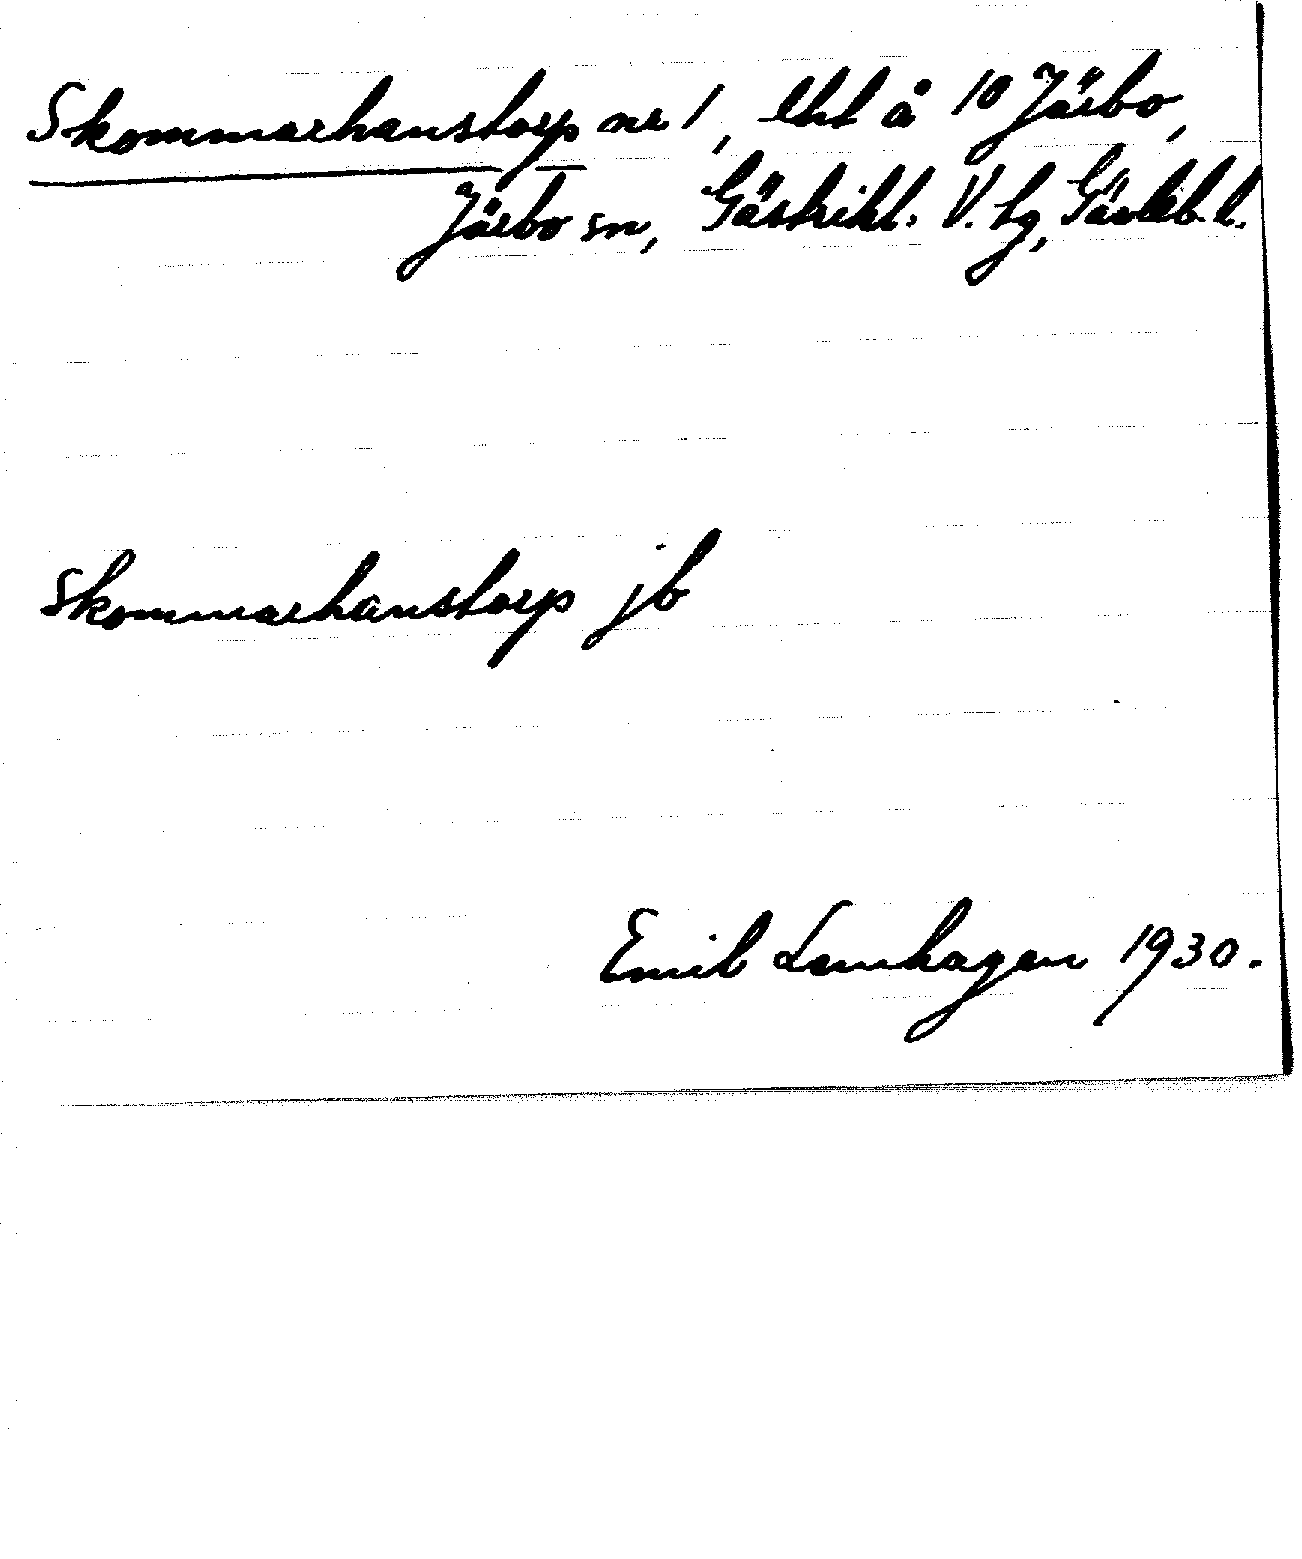 Skommarhanstorp nr 1, lht å 10 Järbo,
Järbo sn, Gästrikl. V. tg, Gävleb. l.
Skommarhanstorp jb
Emil Lamhagen 1930.